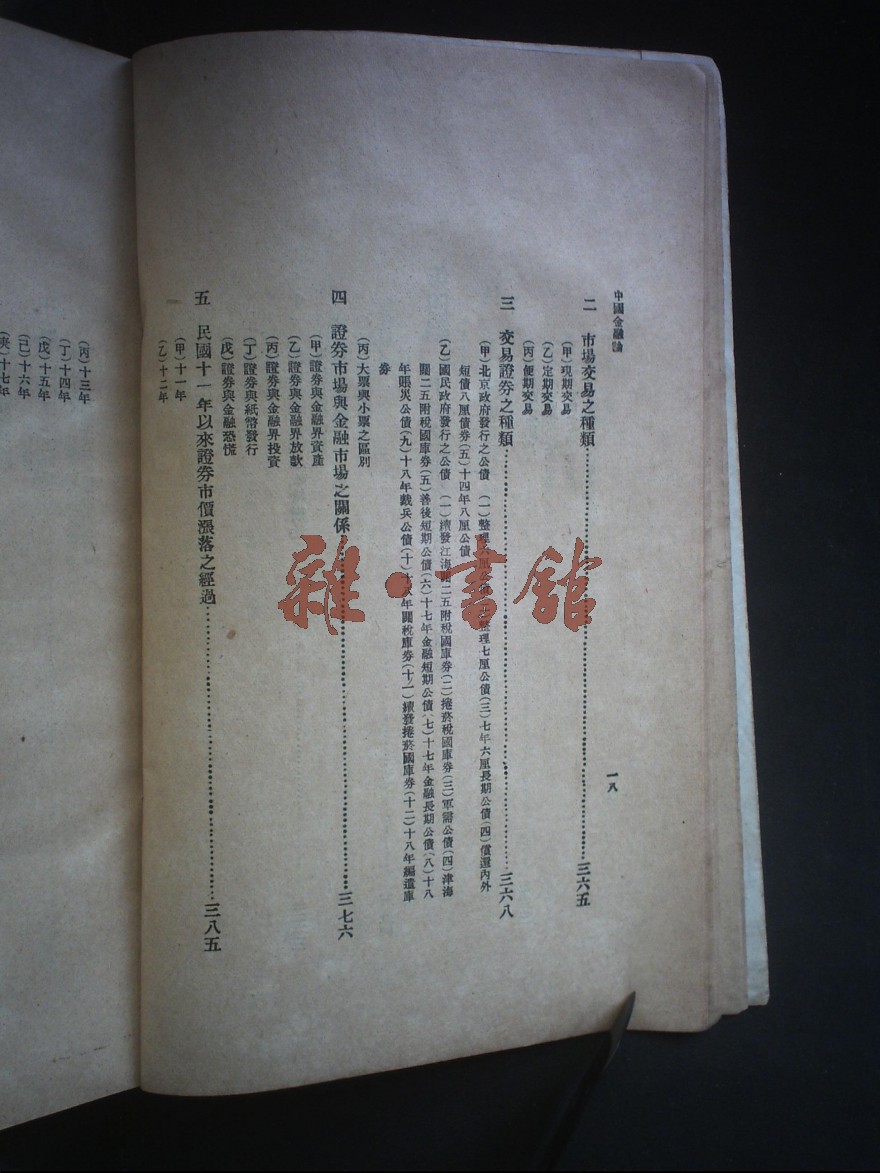 中國金融論
一八
二 市場交易之種類……三六五
(甲)現期交易
(乙)定期交易
(丙)便期交易
三 交易證券之種類……三六八
(甲)北京政府發行之公債 (一)整理六厘公債(二)整理七厘公債(三)七年六厘長期公債(四)償還內外
短債八厘債券(五)十四年八厘公債
(乙)國民政府發行之公債 (一)續發江海關二五附稅國庫券(二)捲菸稅國庫券(三)軍需公債(四)津海
關二五附稅國庫券(五)善後短期公債(六)十七年金融短期公債(七)十七年金融長期公債(八)十八
年賑災公債(九)十八年裁兵公債(十)十八年關稅庫券(十一)續發捲菸國庫券(十二)十八年編遣庫
券
(丙)大票與小票之區別
四 證券市場與金融市場之關係……三七六
(甲)證券與金融界資產
(乙)證券與金融界放款
(丙)證券與金融界投資
(丁)證券與紙幣發行
(戊)證券與金融恐慌
五 民國十一年以來證券市價漲落之經過……三八五
(甲)十一年
(乙)十二年
(丙)十三年
(丁)十四年
(戊)十五年
(己)十六年
(庚)十七年
雜·書館